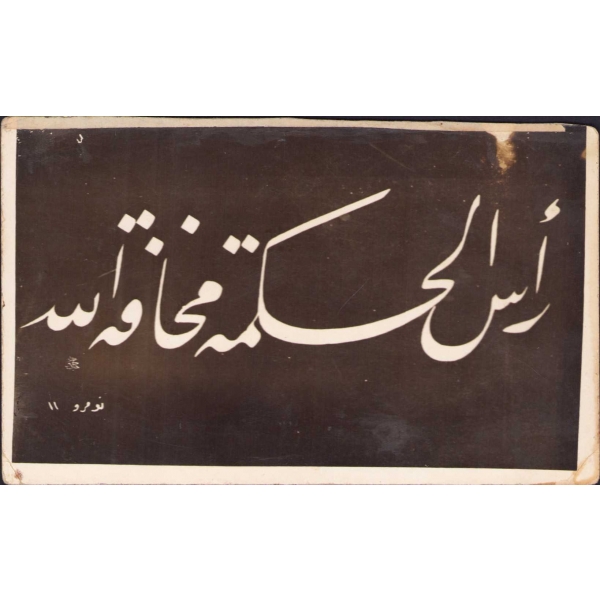 رأس الحكمة مخافة الله
نومرو ١١